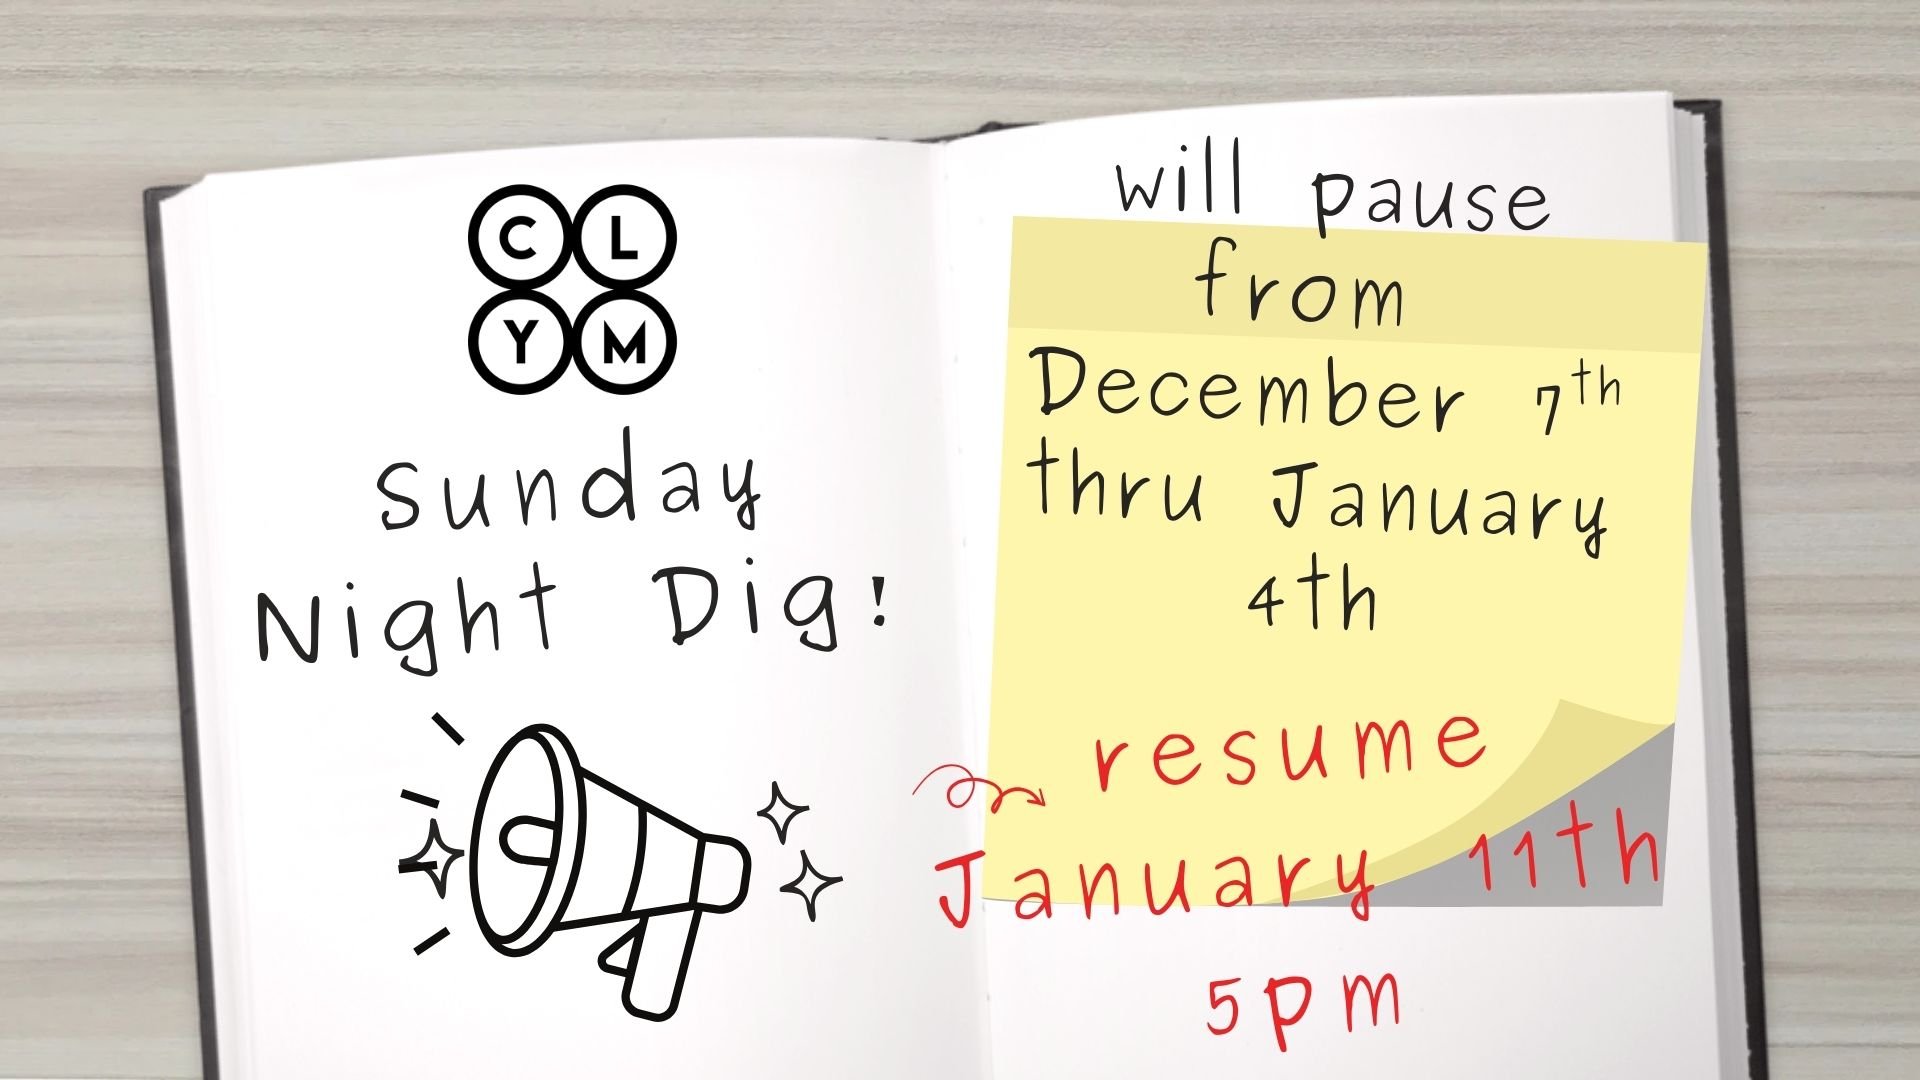 C L
Y M
sunday
Night Dig!
will pause
from
December 7th
thru January
4th
resume
January 11th
5pm